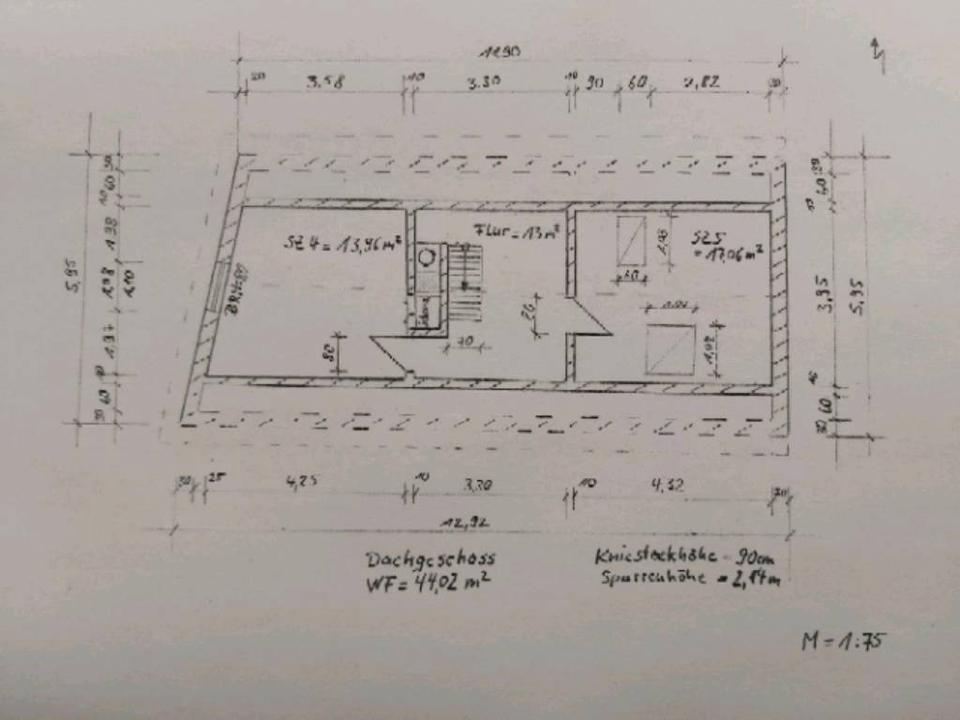 11.90
20 3.58 10 3.30 10 90 60 2,82 30
5,95
30 60 10 1.38 1,08 1,10 1,97 10 60 30
SZ 4 = 13,96 m²
Flur = 13 m²
SZ 5
= 17,06 m²
1,03
60
1,02
1,02
80
70
70
60 10 3,95 10 60 30
5.95
30 25 4,25 10 3,30 10 4,32 30
12,92
Dachgeschoss
WF = 44,02 m²
Kniestockhöhe = 90cm
Sparrenhöhe = 2,14m
M = 1:75